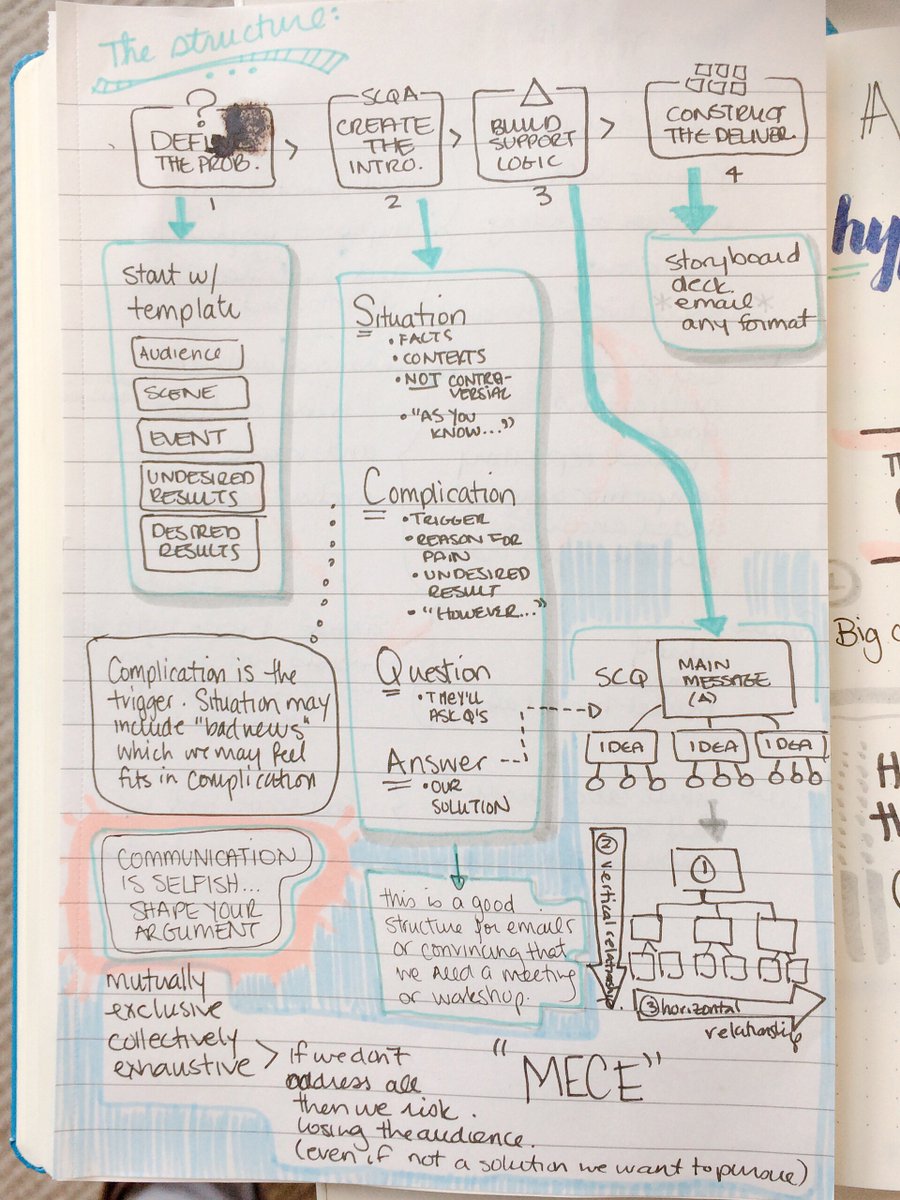 The structure:
?
DEFI
THE PROB.
1
SCQA
CREATE
THE
INTRO.
2
BUILD
SUPPORT
LOGIC
3
CONSTRUCT
THE DELIVER.
4
start w/
template
AUDIENCE
SCENE
EVENT
UNDESIRED
RESULTS
DESIRED
RESULTS
Situation
• FACTS
• CONTEXTS
• NOT CONTRA-
VERSIAL
• "AS YOU
KNOW..."
Complication
• TRIGGER
• REASON FOR
PAIN
• UNDESIRED
RESULT
• "HOWEVER..."
Question
• THEY'LL
ASK Q'S
Answer
• OUR
SOLUTION
storyboard
deck.
email
any format
Complication is the
trigger. Situation may
include "bad news"
which we may feel
fits in complication
COMMUNICATION
IS SELFISH...
SHAPE YOUR
ARGUMENT
this is a good
structure for emails
or convincing that
we need a meeting
or workshop.
SCQ
MAIN
MESSAGE
(A)
IDEA
IDEA
IDEA
1
2 vertical relationship
3 horizontal
relationship
mutually
exclusive
collectively
exhaustive > If we don't
address all
then we risk.
losing the audience.
(even if not a solution we want to pursue)
"MECE"
hy
Big